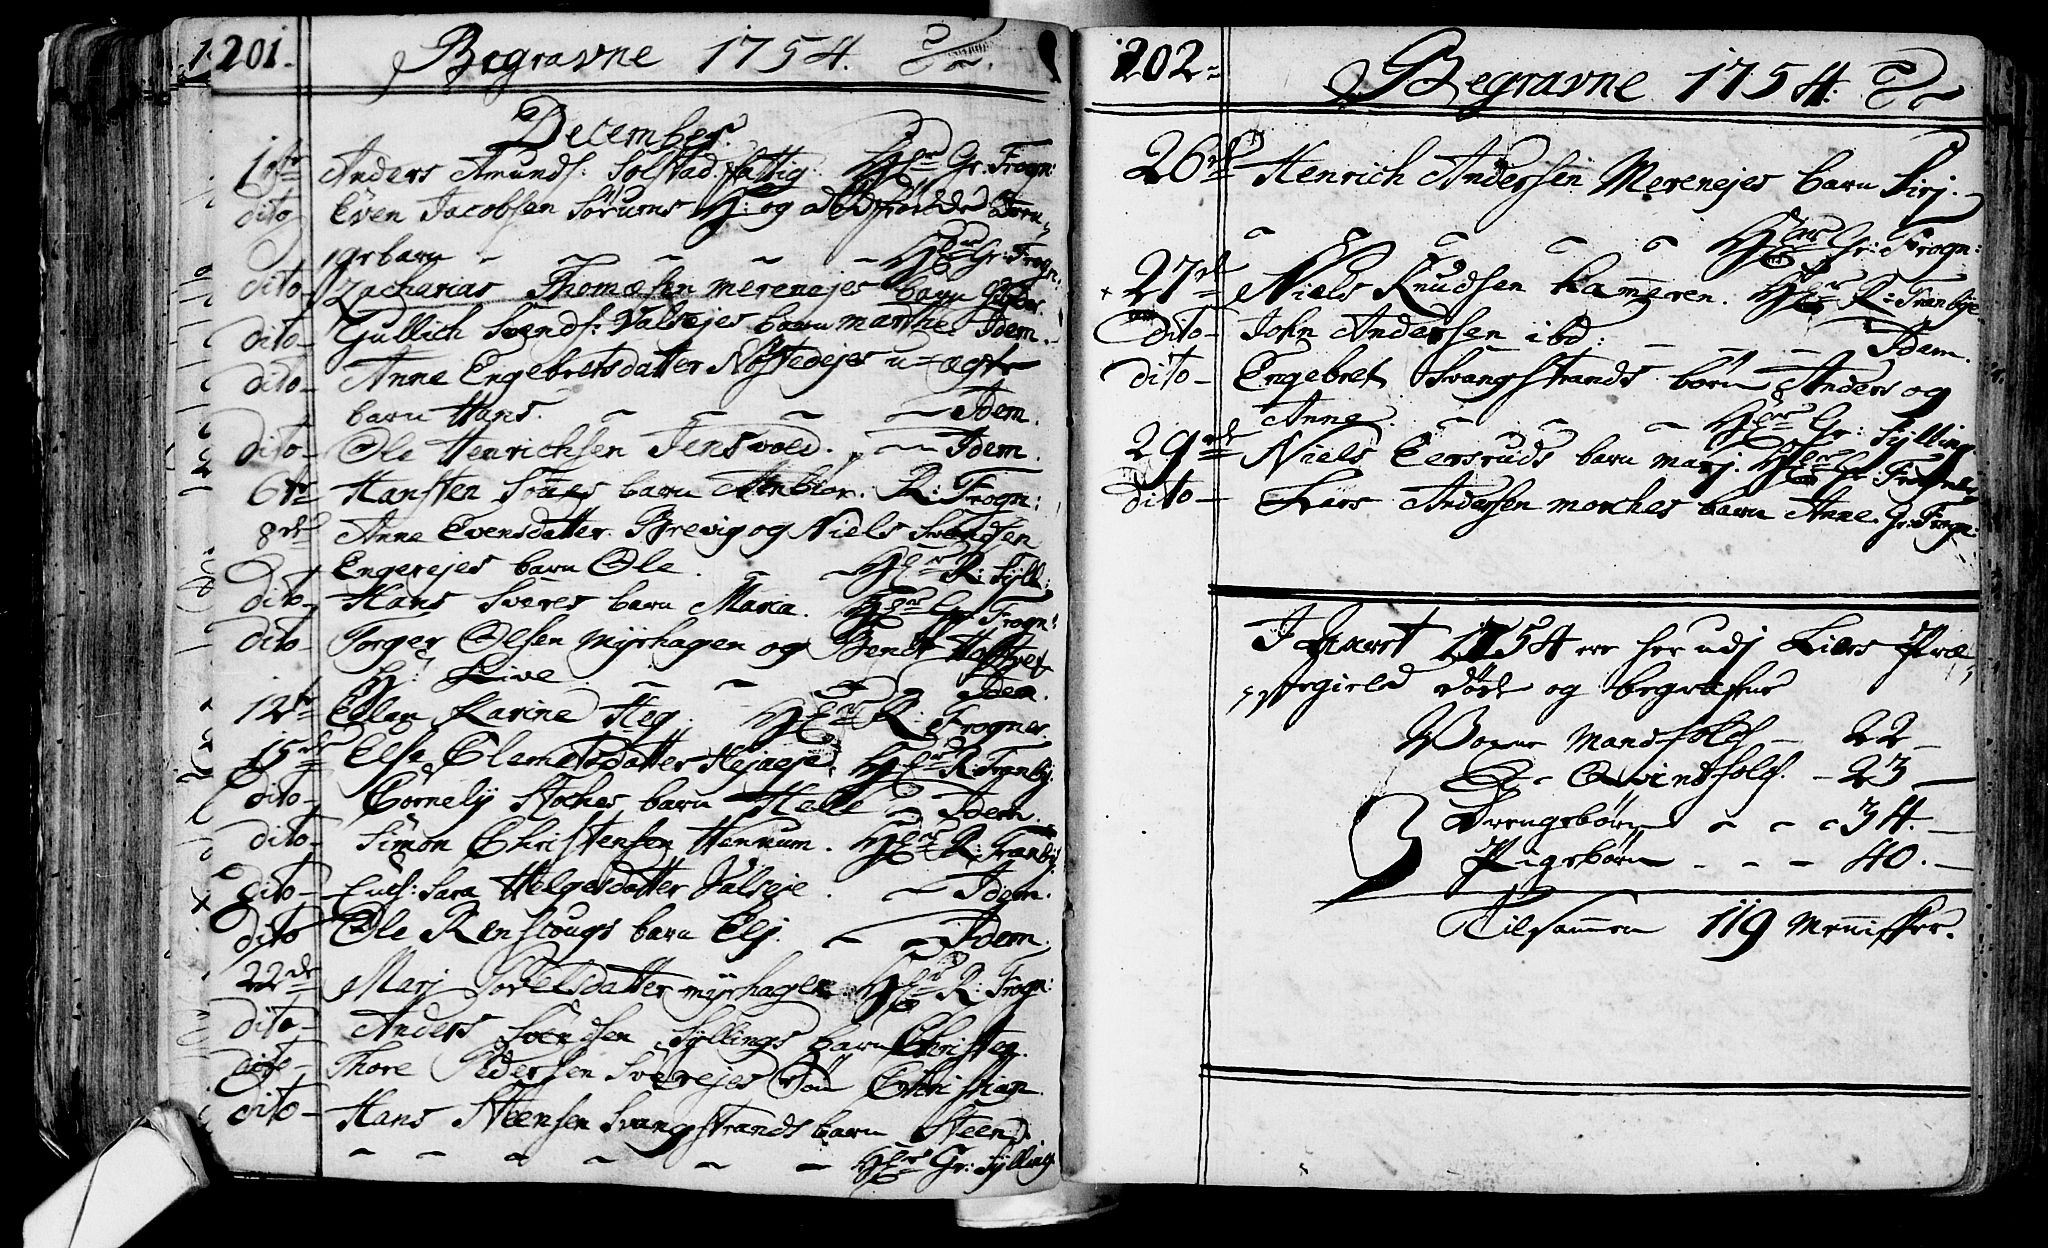 201.
Begravne 1754.
December.
1ste Anders Amunds: Solstad fattig. Gr: Frogn:
dito Even Jacobsen Sørums H: og dødfødde
barn Gr: Frogn:
dito Zacharias Thomæsen Merenejes barn
dito Gullich Svends: Valsejes barn Marthe Idem.
dito Anne Engebretsdatter Nøsteejes u-ægte
barn Hans. Idem.
dito Ole Henrichsen Jensvold. Idem.
6te Hansten barn R: Frogn:
8de Anne Evensdatter Brevig og Niels Svendsen
Engerejes barn Ole. R: Syll:
dito Hans Sveres barn Maria. Gr: Frogn:
dito Torger Olsen Myrhagen og Bent
H: Live Idem.
12te Ellen Karine Heg. R: Frogner
15de Else Clemetsdatter R: Franbÿ:
dito Cornelÿ Stokes barn Helle Idem.
dito Simon Christensen Hennum. R: Franbÿ:
dito Sara Helgesdatter Valseje. Idem.
dito Ole Renskougs barn Elj. Idem.
22de Marj Myrhagen R: Frogn:
dito Anders Svendsen Syllings barn
dito Thore Pedersen Sverejes Søn Christian.
dito Hans Steensen Svangstrands barn Steen
Gr: Sylling
202
Begravne 1754.
26de Henrich Andersen Merenejes barn Sirj.
Gr: Frogn:
27de Niels Knudsen Kam̄eren. R: Franbÿe.
dito John Andersen ibd: Idem.
dito Engebret Svangstrands børn Anders og
Anne. Gr: Sylling.
29de Niels Eersruds barn Marj.
dito Lars Andersen Morches barn Anne. Gr: Frogn:
I Aaret 1754 ere her udj Liers Præ
stegield døde og begrafne
Voxne Mandfolch 22
Qvindfolch. 23
Drengebørn 34.
Pigebørn 40.
Tilsam̄en 119 Mennisker.